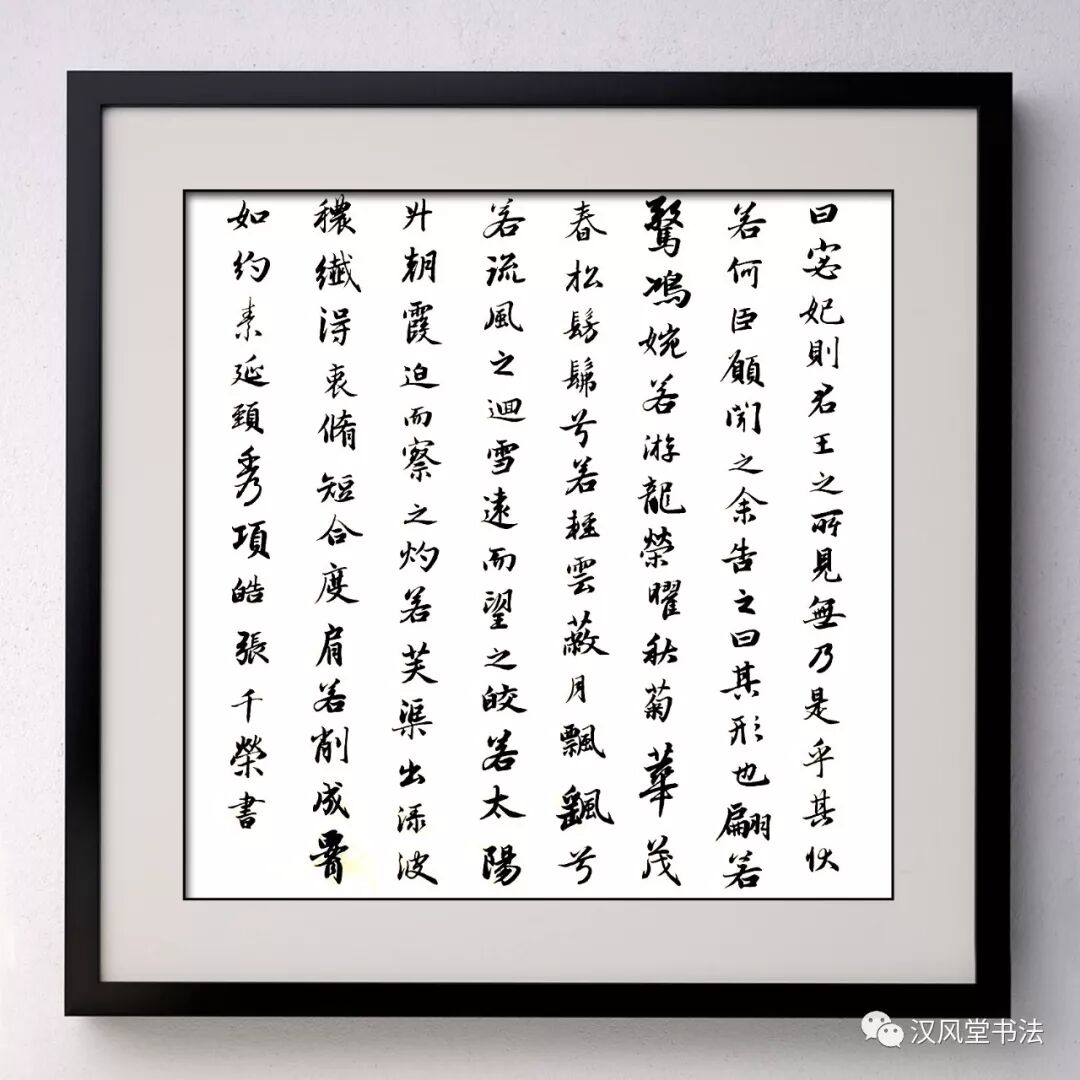 曰宓妃則君王之所見無乃是乎其狀
若何臣願聞之余告之曰其形也翩若
驚鴻婉若游龍榮曜秋菊華茂
春松髣髴兮若輕雲蔽月飄飖兮
若流風之迴雪遠而望之皎若太陽
升朝霞迫而察之灼若芙渠出渌波
穠纖得衷脩短合度肩若削成腰
如約素延頸秀項皓張千榮書
汉风堂书法